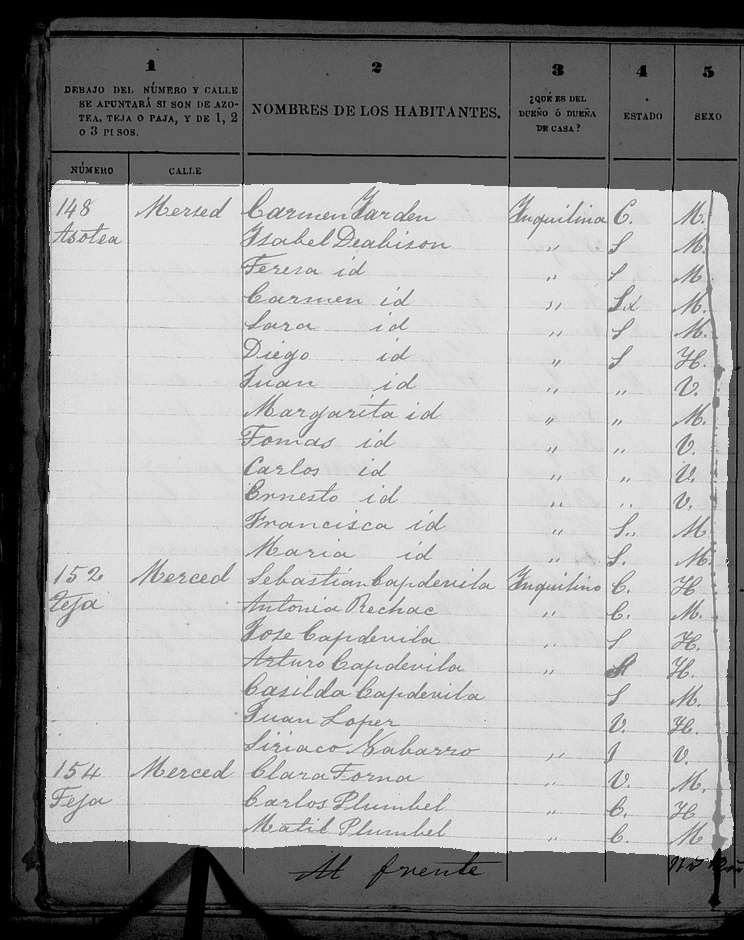 1 2 3 4 5
DEBAJO DEL NÚMERO Y CALLE
SE APUNTARÁ SI SON DE AZO-
TEA, TEJA O PAJA, Y DE 1, 2
O 3 PISOS.
NOMBRES DE LOS HABITANTES.
¿QUÉ ES DEL
DUEÑO Ó DUEÑA
DE CASA?
ESTADO
SEXO
NÚMERO CALLE
148 Mersed Carmen Jarden Inquilina C. M.
Asotea Isabel Deabison " S M.
Teresa id " S M
Carmen id " M.
Sara id " S M.
Diego id " S H.
Juan id " " V.
Margarita id " " M.
Tomas id " " V.
Carlos id " " V.
Ernesto id " " V.
Francisca id " S. M
Maria id " S. M.
152 Merced Sebastian Capdevila Inquilino C. H
Teja Antonia Rechac " C. M.
Jose Capdevila " S H.
Arturo Capdevila " H.
Casilda Capdevila S M.
Juan Loper V. H.
Siriaco Nabarro " V.
154 Merced Clara Forna " V. M.
Teja Carlos Plumbel " C. H
Matil Plumbel " C. M
Al frente